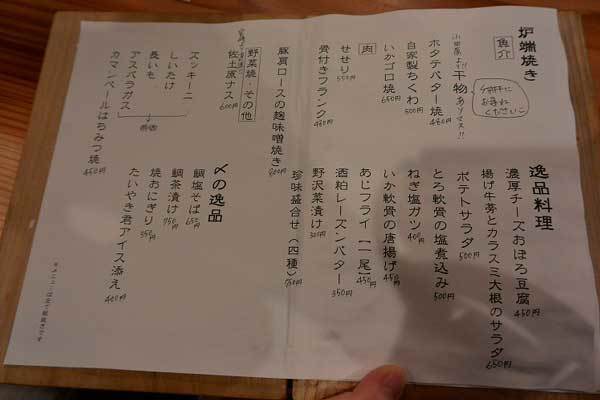 炉端焼き
魚介
小田原より!! 干物あります!!
お気軽にお尋ねください
ホタテバター焼 480円
自家製ちくわ 500円
いかゴロ焼 650円
肉
せせり 500円
骨付きフランク 480円
豚肩ロースの麹味噌焼き 800円
野菜焼 その他
佐土原ナス 600円
ズッキーニ
しいたけ
長いも
アスパラガス
カマンベールはちみつ焼 450円
逸品料理
濃厚チーズおぼろ豆腐 450円
揚げ牛蒡とカラスミ大根のサラダ 650円
ポテトサラダ 500円
とろ軟骨の塩煮込み 500円
ねぎ塩ガツ 400円
いか軟骨の唐揚げ 450円
あじフライ【一尾】 450円
酒粕レーズンバター 350円
野沢菜漬け 300円
珍味盛合せ（四種） 750円
〆の逸品
鯛塩そば 650円
鯛茶漬け 750円
焼おにぎり 350円
たいやき君アイス添え 400円
※メニューは全て税抜きです